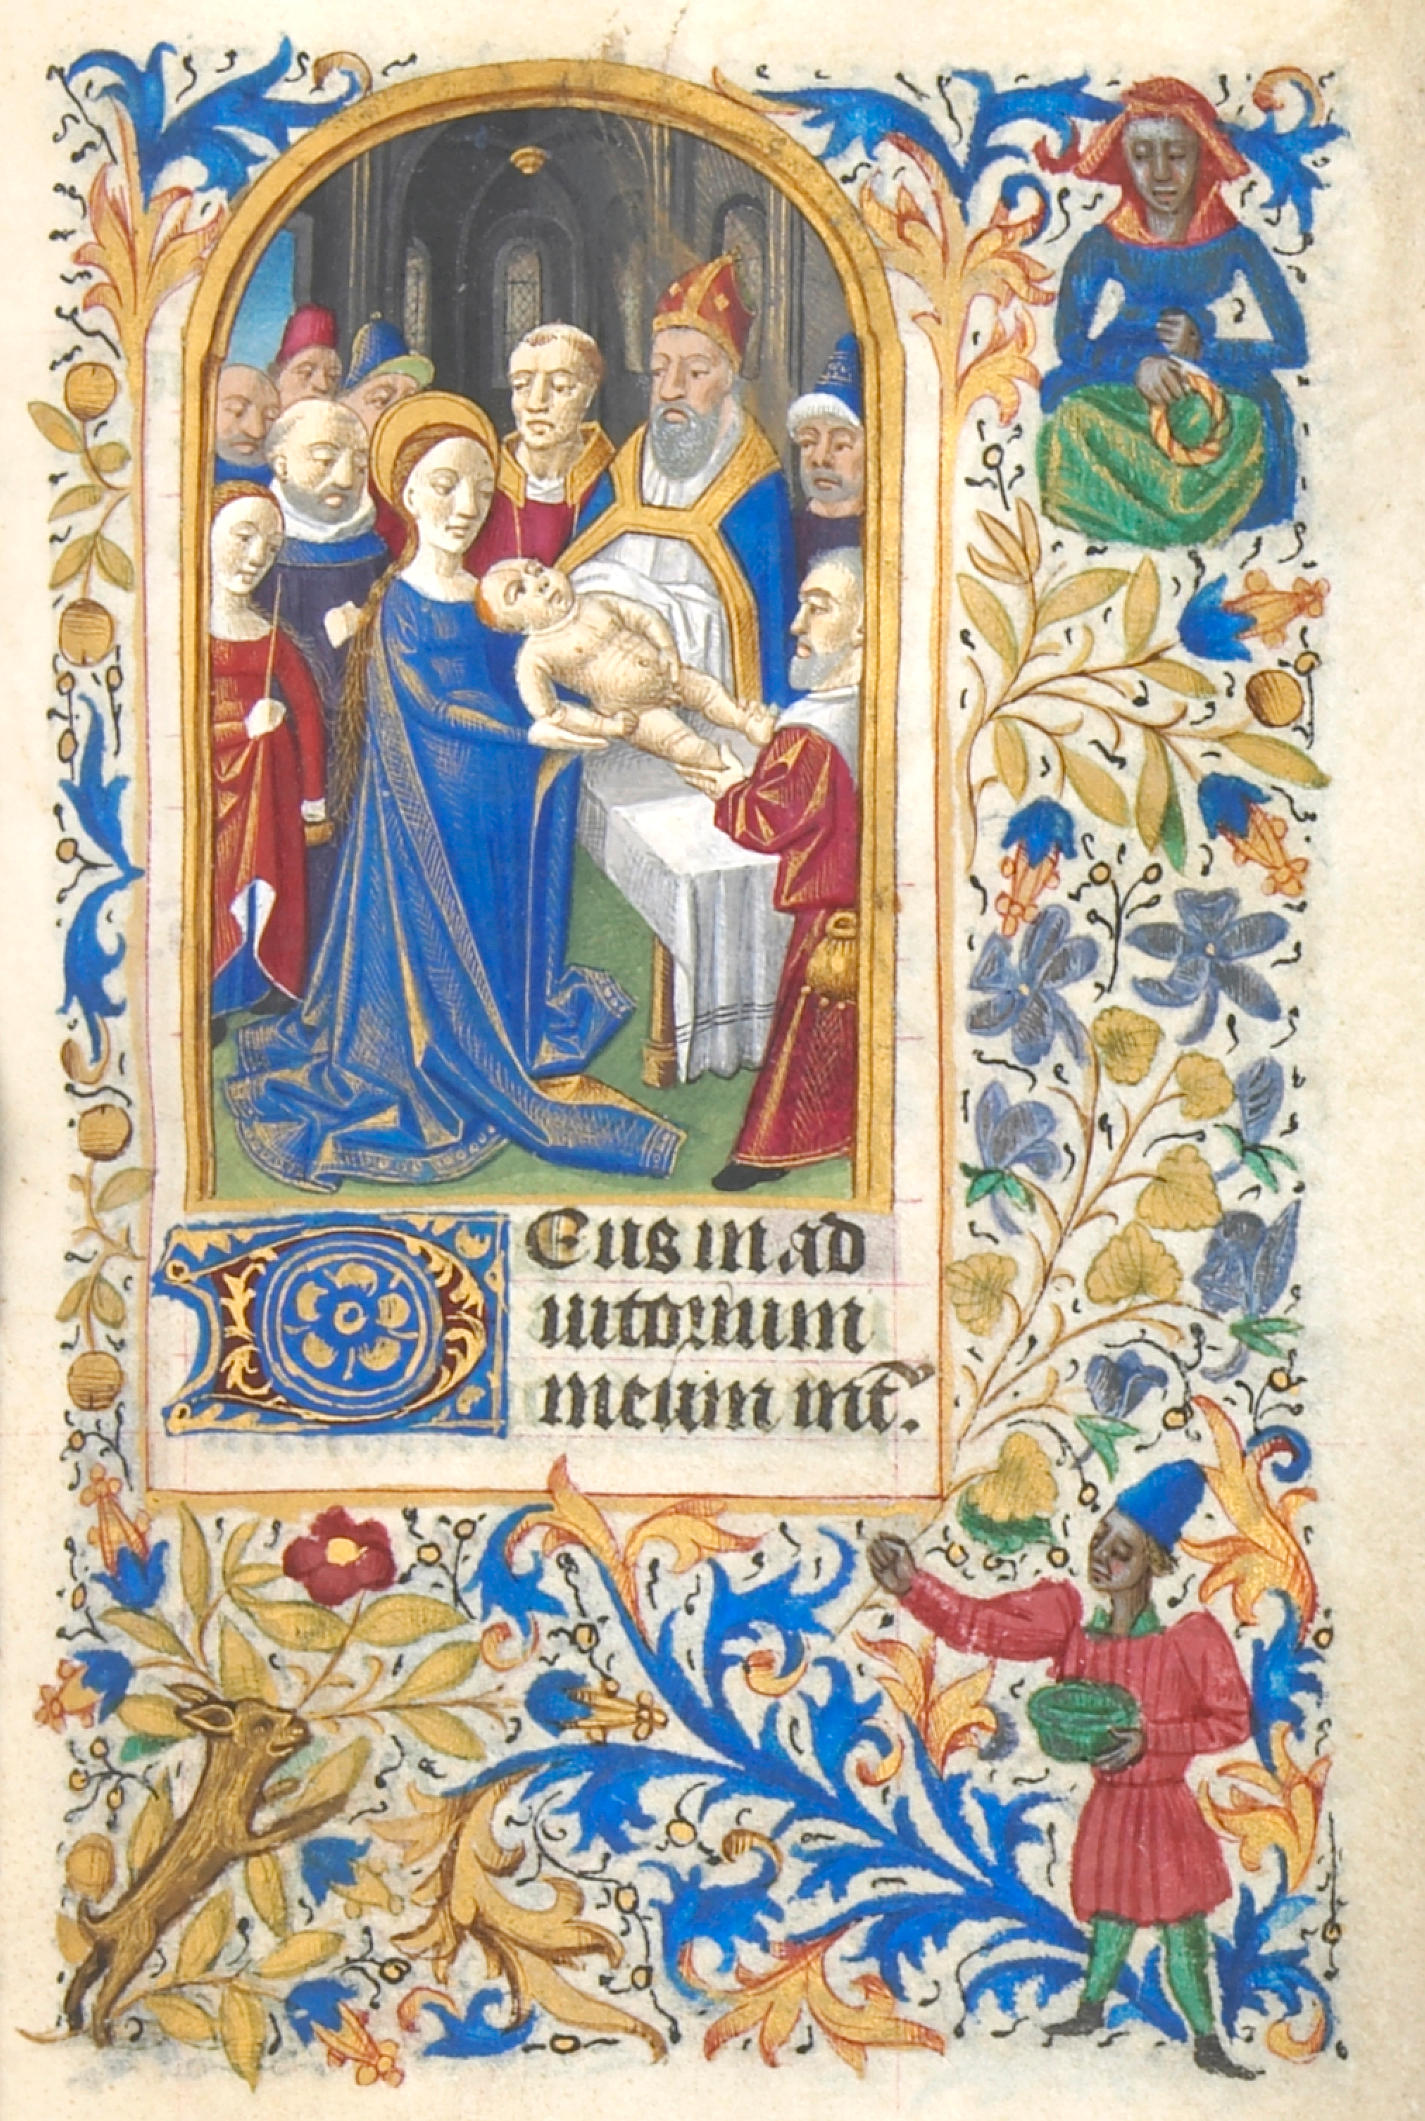 Deus in ad
iutorium
meum int̃.